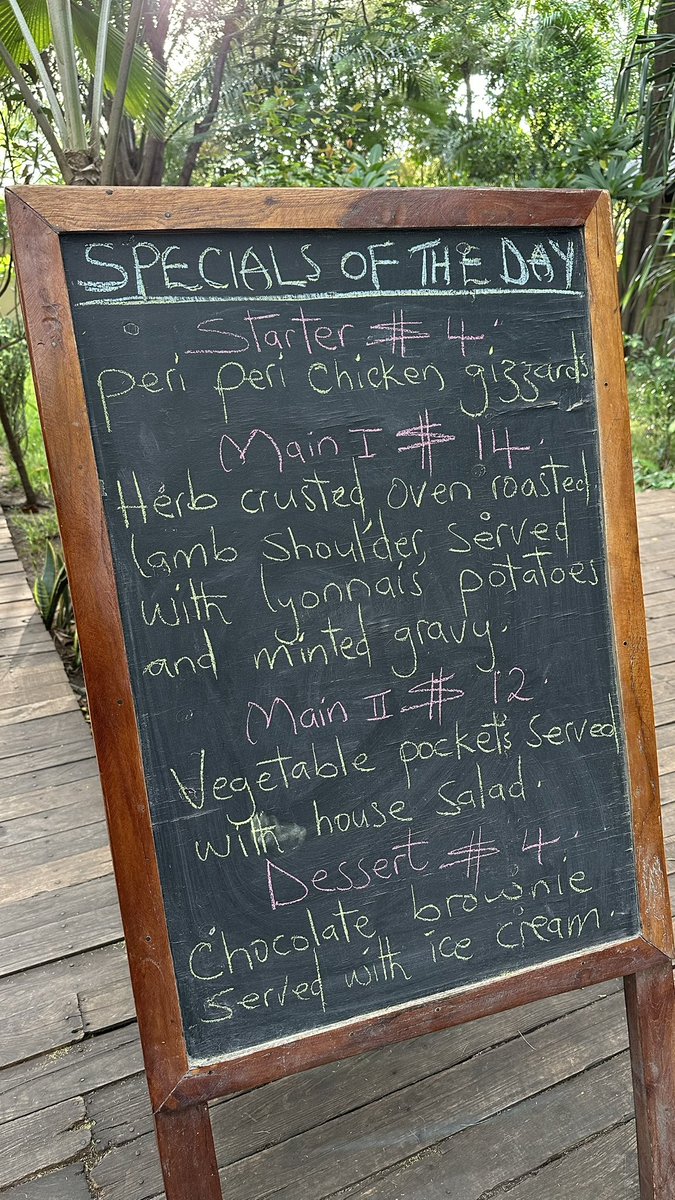 SPECIALS OF THE DAY
Starter $ 4.
peri peri chicken gizzards
Main I $ 14.
Herb crusted oven roasted
lamb shoulder, served
with lyonnais potatoes
and minted gravy.
Main II $ 12.
Vegetable pockets served
with house salad.
Dessert $ 4.
Chocolate brownie
served with ice cream.